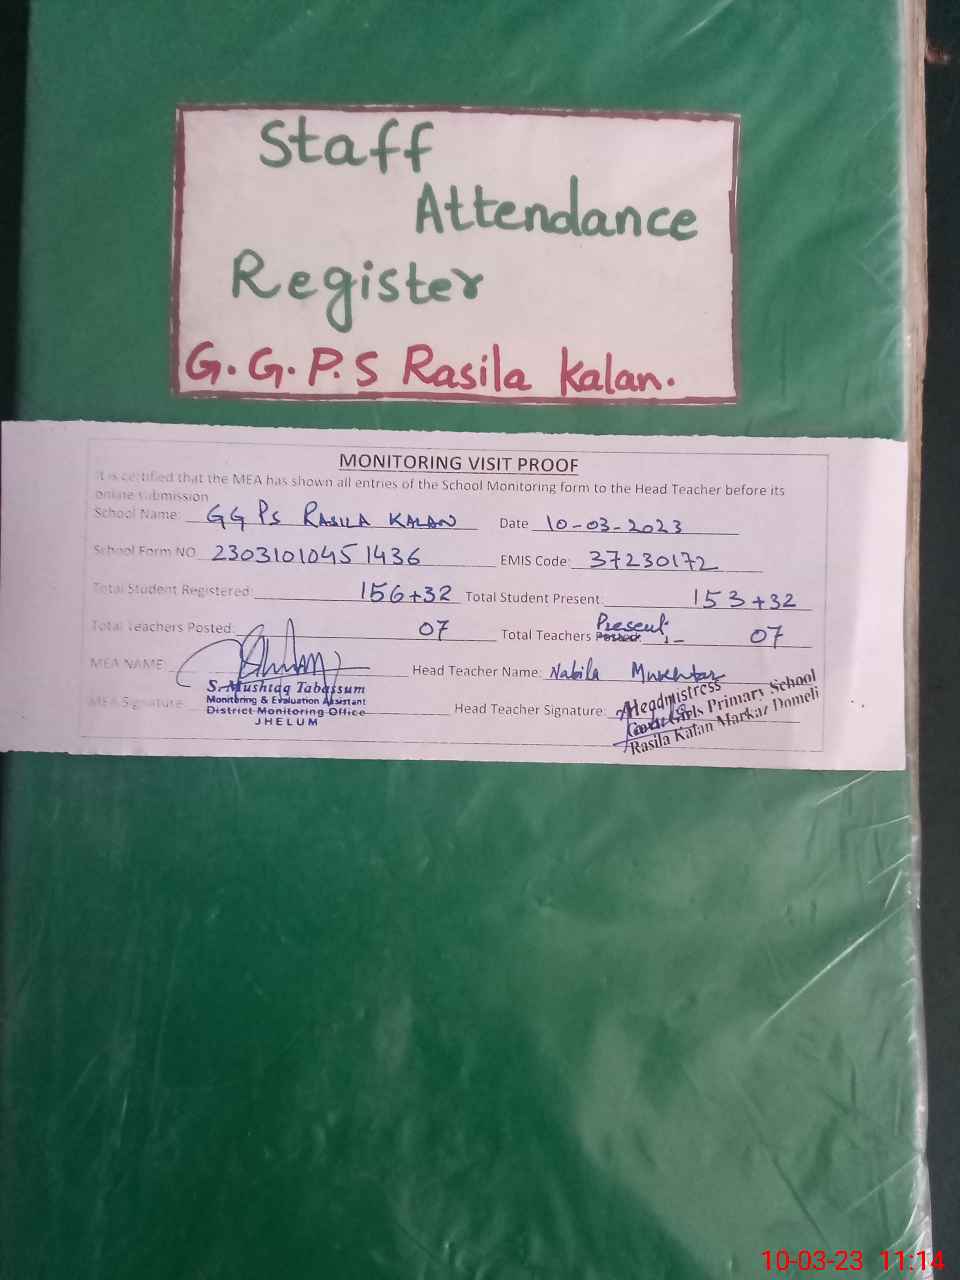 Staff
Attendance
Register
G.G.P.S Rasila Kalan.
MONITORING VISIT PROOF
It is certified that the MEA has shown all entries of the School Monitoring form to the Head Teacher before its
online submission
School Name: GGPS RASILA KALAN Date 10-03-2023
School Form NO 23031010451436 EMIS Code: 37230172
Total Student Registered: 156+32 Total Student Present: 153+32
Total Teachers Posted: 07 Total Teachers Posted: Present: 07
MEA NAME Head Teacher Name: Nabila Mukhtar
S. Mushtaq Tabassum
Monitoring & Evaluation Assistant
District Monitoring Office
JHELUM
MEA Signature Head Teacher Signature:
Headmistress
Govt Girls Primary School
Rasila Kalan Markaz Domeli
10-03-23 11:14